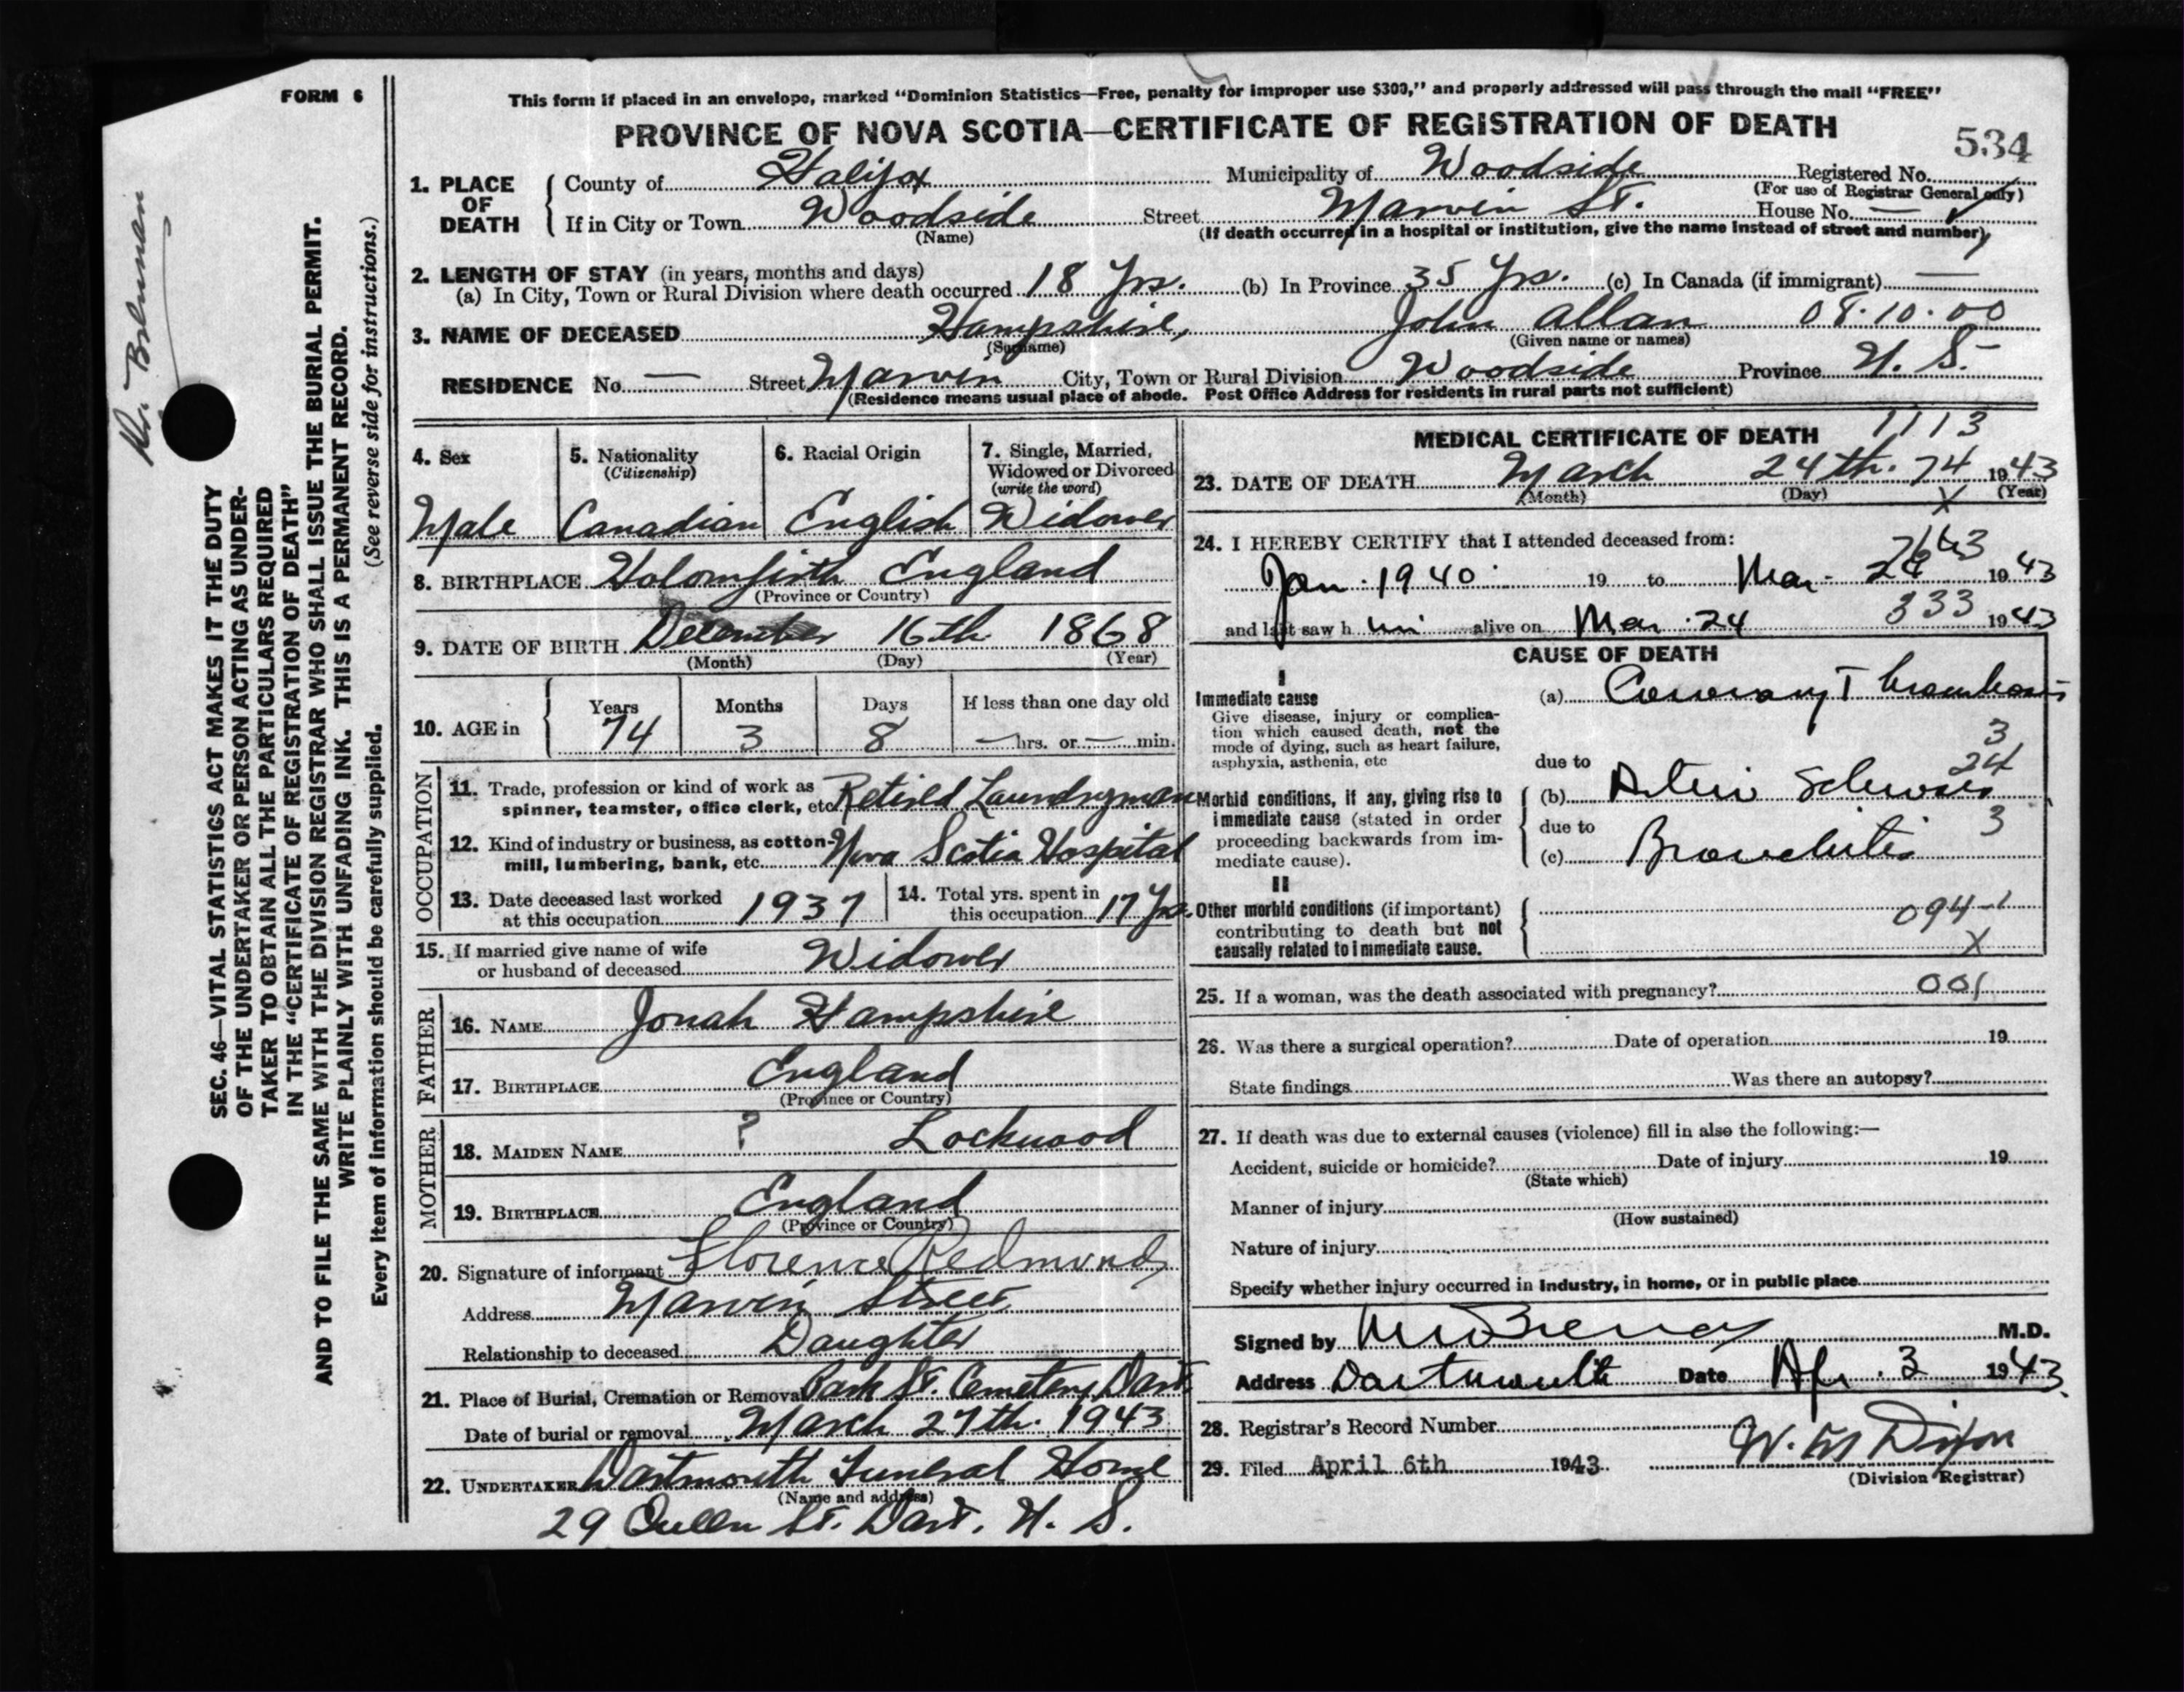 FORM 6
This form if placed in an envelope, marked "Dominion Statistics—Free, penalty for improper use $300," and properly addressed will pass through the mail "FREE"
PROVINCE OF NOVA SCOTIA—CERTIFICATE OF REGISTRATION OF DEATH
534
1. PLACE OF DEATH
County of Halifax Municipality of Woodside Registered No.
(For use of Registrar General only)
If in City or Town Woodside Street Marvin St. House No. —
(Name) (If death occurred in a hospital or institution, give the name instead of street and number)
2. LENGTH OF STAY (in years, months and days)
(a) In City, Town or Rural Division where death occurred 18 Yrs. (b) In Province 35 Yrs. (c) In Canada (if immigrant) —
3. NAME OF DECEASED Hampshire, John Allan 08.10.00
(Surname) (Given name or names)
RESIDENCE No. — Street Marvin City, Town or Rural Division Woodside Province N. S.
(Residence means usual place of abode. Post Office Address for residents in rural parts not sufficient)
4. Sex 5. Nationality (Citizenship) 6. Racial Origin 7. Single, Married, Widowed or Divorced (write the word)
Male Canadian English Widower
8. BIRTHPLACE Holomfirth England
(Province or Country)
9. DATE OF BIRTH December 16th 1868
(Month) (Day) (Year)
10. AGE in Years Months Days If less than one day old
74 3 8 — hrs. or — min.
OCCUPATION
11. Trade, profession or kind of work as spinner, teamster, office clerk, etc. Retired Laundryman
12. Kind of industry or business, as cotton-mill, lumbering, bank, etc. Nova Scotia Hospital
13. Date deceased last worked at this occupation 1937 14. Total yrs. spent in this occupation 17 Yrs.
15. If married give name of wife or husband of deceased Widower
FATHER
16. NAME Jonah Hampshire
17. BIRTHPLACE England
(Province or Country)
MOTHER
18. MAIDEN NAME ? Lockwood
19. BIRTHPLACE England
(Province or Country)
20. Signature of informant Florence Redmond
Address Marvin Street
Relationship to deceased Daughter
21. Place of Burial, Cremation or Removal Park St. Cemetery Dart.
Date of burial or removal March 27th. 1943
22. UNDERTAKER Dartmouth Funeral Home
(Name and address)
29 Queen St. Dart. N. S.
MEDICAL CERTIFICATE OF DEATH 1113
23. DATE OF DEATH March 24th. 74 1943
(Month) (Day) X (Year)
24. I HEREBY CERTIFY that I attended deceased from:
Jan. 1940 19 to Mar. 24 1943
and last saw him alive on Mar. 24 333 1943
CAUSE OF DEATH
I
Immediate cause
Give disease, injury or complication which caused death, not the mode of dying, such as heart failure, asphyxia, asthenia, etc
(a) Coronary Thrombosis
3
due to 24
Morbid conditions, if any, giving rise to immediate cause (stated in order proceeding backwards from immediate cause).
(b) Arterio Sclerosis
due to 3
(c) Bronchitis
II
Other morbid conditions (if important) contributing to death but not causally related to immediate cause.
094-1
X
25. If a woman, was the death associated with pregnancy? 001
26. Was there a surgical operation? Date of operation 19
State findings Was there an autopsy?
27. If death was due to external causes (violence) fill in also the following:—
Accident, suicide or homicide? Date of injury 19
(State which)
Manner of injury
(How sustained)
Nature of injury
Specify whether injury occurred in industry, in home, or in public place
Signed by M.D.
Address Dartmouth Date Apr. 3 1943
28. Registrar's Record Number
29. Filed April 6th 1943 Dixon
(Division Registrar)
SEC. 46—VITAL STATISTICS ACT MAKES IT THE DUTY
OF THE UNDERTAKER OR PERSON ACTING AS UNDER-
TAKER TO OBTAIN ALL THE PARTICULARS REQUIRED
IN THE "CERTIFICATE OF REGISTRATION OF DEATH"
AND TO FILE THE SAME WITH THE DIVISION REGISTRAR WHO SHALL ISSUE THE BURIAL PERMIT.
WRITE PLAINLY WITH UNFADING INK. THIS IS A PERMANENT RECORD.
Every item of information should be carefully supplied. (See reverse side for instructions.)